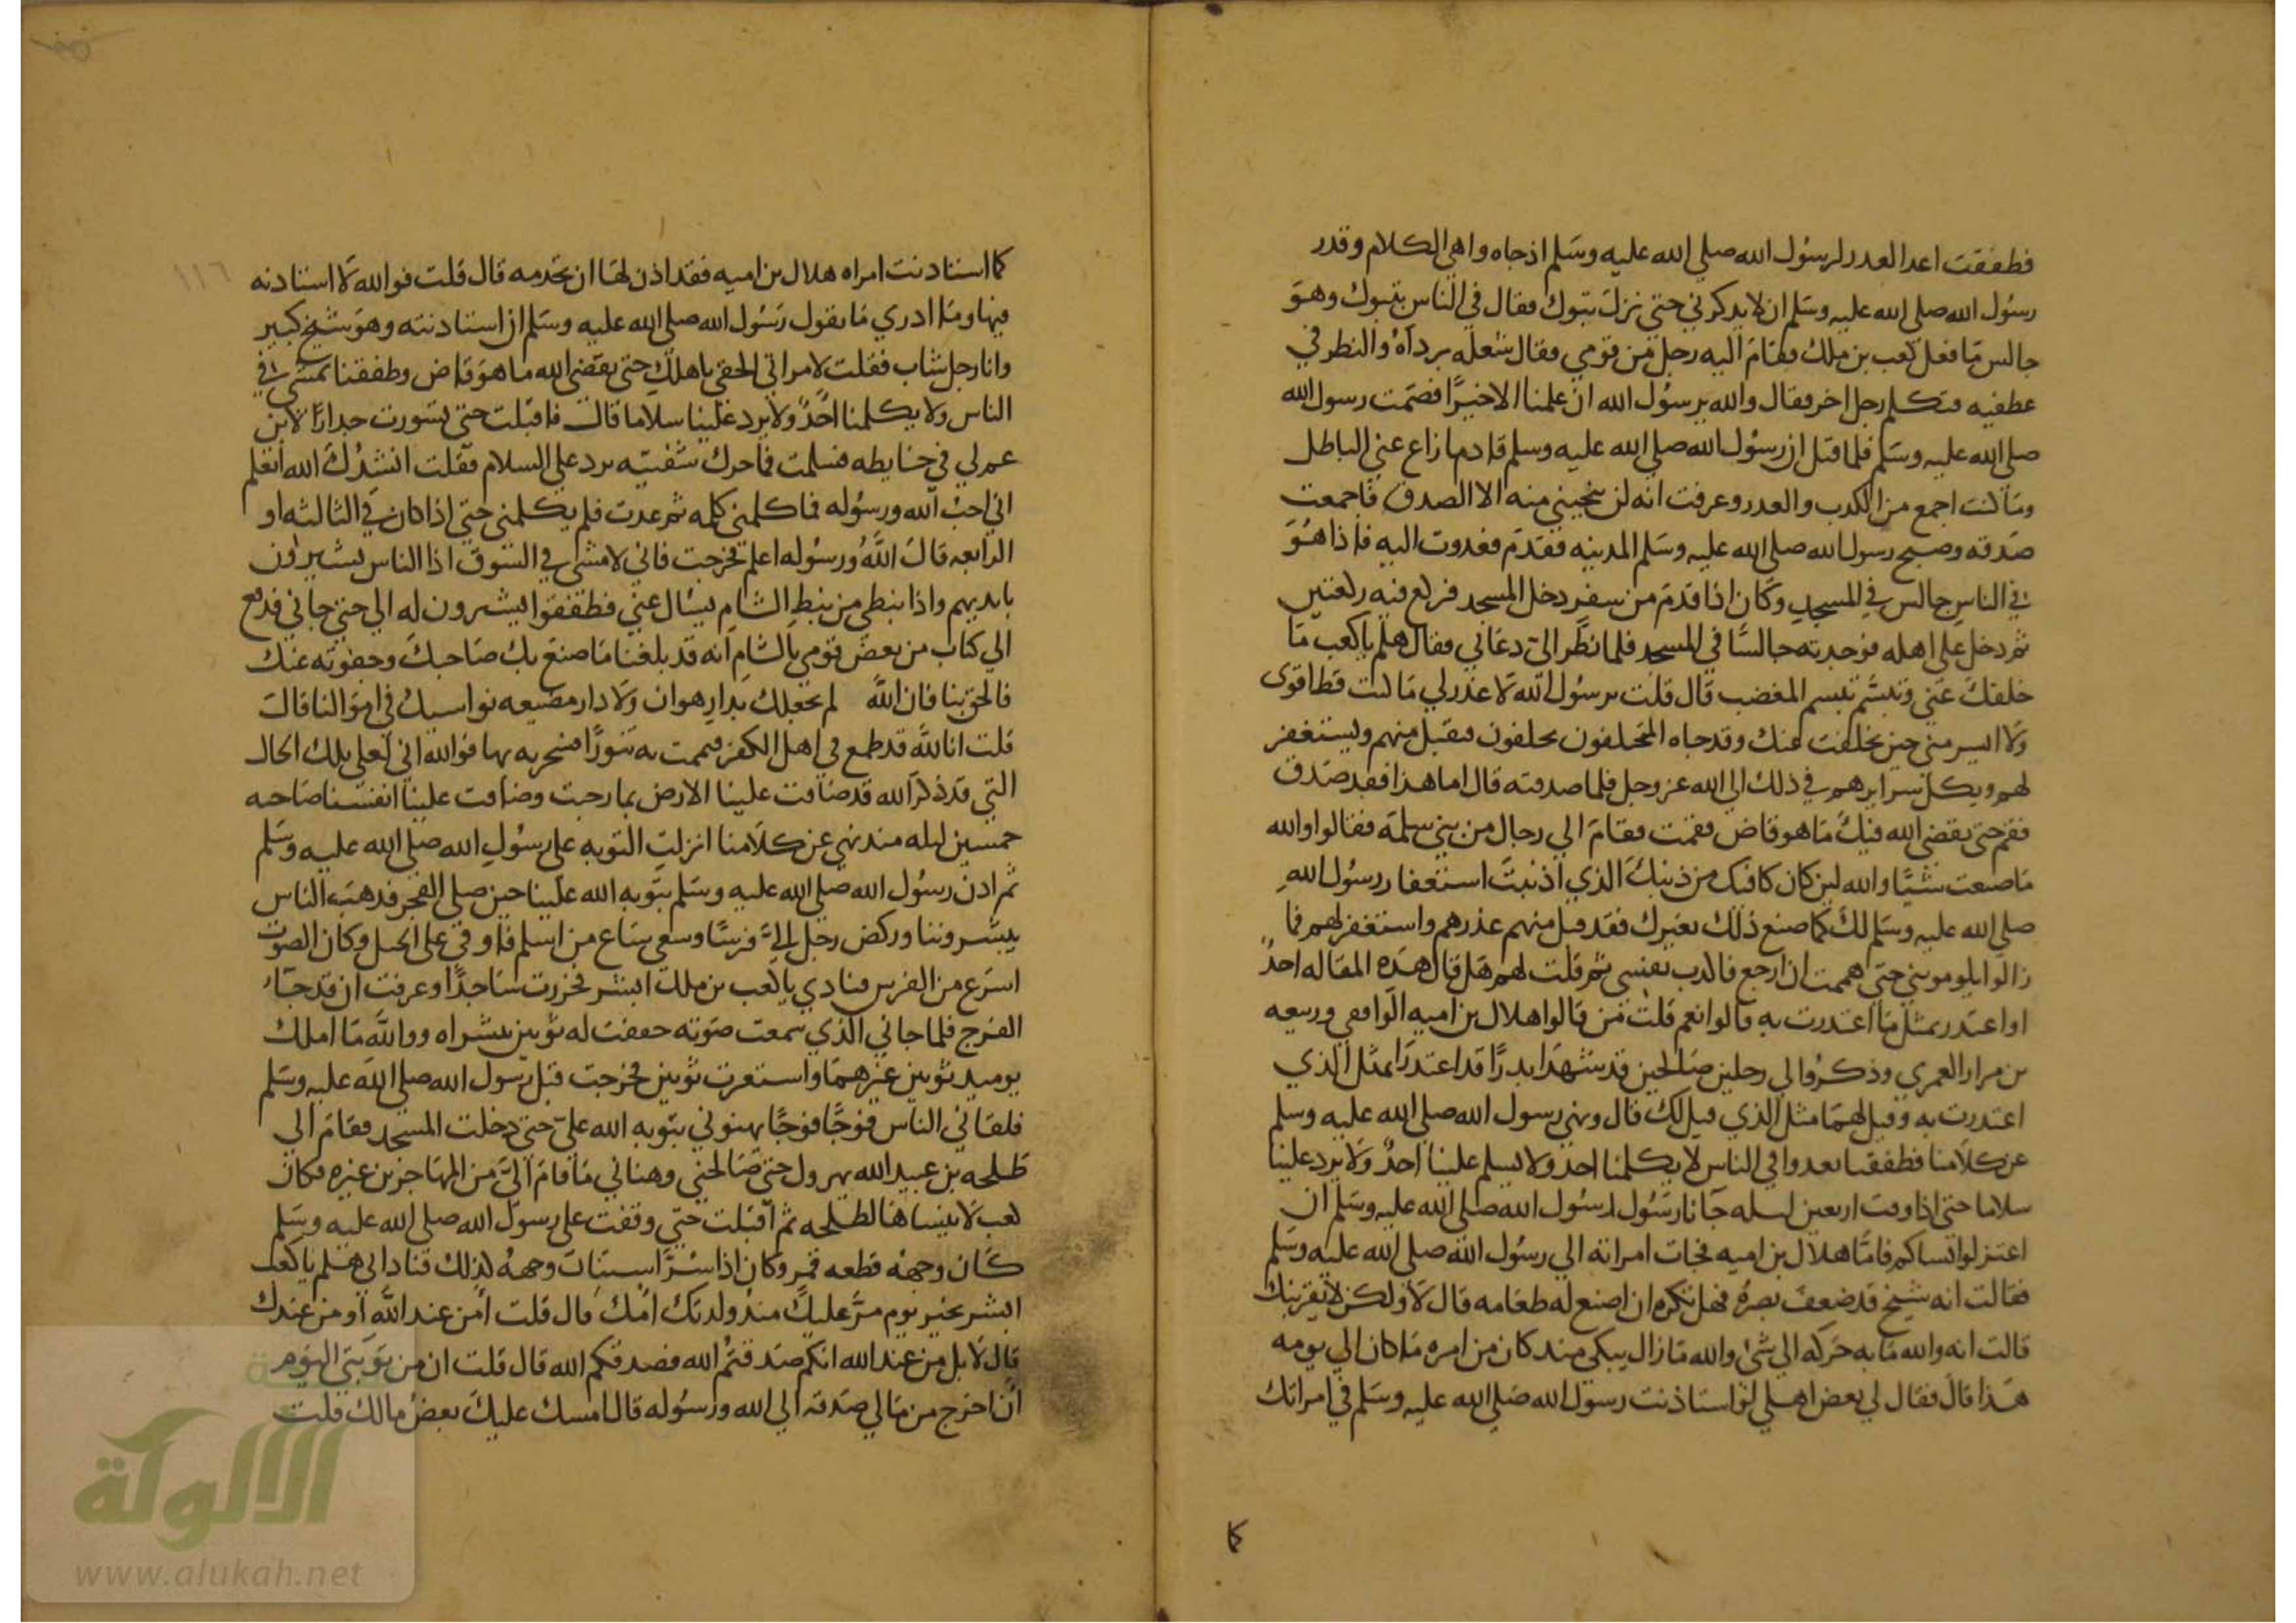 فطففقت اعد العدر لرسُول الله صلى الله عليه وسَلم اذ جاه واهي الكلام وقدر
رسُول الله صلى الله عليه وسَلم ان لا يدكرني حتى نزل بتبوك فقال في الناس بتبوك وهوَ
جالس مَا فعل كعب بن ملك فقامَ اليه رجل من قومي فقال شغله بردآهُ والنظر في
عطفيه فتكلم رجل اخر فقال والله يرسُول الله ان علمنا الا خيرًا فصَمت رسول الله
صلى الله عليه وسَلم فلما قيل ان رسُول الله صلى الله عليه وسلم قادما زاع عني الباطل
ومَا كنت اجمع من الكدب والعدر وعرفت انه لن ينجيني منه الا الصدق فاجمعت
صَدقه وصبح رسول الله صلى الله عليه وسَلم المدينه فقدَم فغدوت اليه فاذا هُوَ
في الناسِ جالس في المسجدِ وكان اذا قدمَ من سفرٍ دخل المسجد فركع فيه ركعتين
ثم دخل على اهله فوجدته جالسًا في المسجد فلما نظر الىّ دعاني فقال هلم ياكعب مَا
خلفكَ عني وتبسَّم تبسم المغضب قال قلت يرسُول الله لَا عذر لي مَا كنت قط اقوى
ولَا ايسر مني حين تخلفت عنك وقد جاه المخلفون يحلفون فيقبل منهم ويستغفر
لهم ويكل سرايرهم في ذلك الى الله عز وجل فلما صدقته قال اما هذا فقد صَدق
فقم حتى يقضي الله فيكَ مَا هو قاض فقمت فقامَ الي رجال من بني سلمة فقالوا والله
مَا صنعت شيًا والله لين كان كافيك من ذنبكَ الذي اذنبتَ استغفار رسُول اللهِ
صلى الله عليه وسَلم لكَ كما صنع ذلك بغيرك فقد قبل منهم عذرهم واستغفر لهم فما
زالوا يلوموني حتى هممت ان ارجع فاكدب نفسي ثم قلت لهم هل قال هذه المقاله احدٌ
او اعتدر بمثل مَا اعتدرت به قالوا نعم قلت من قالوا هلال بن اميه الواقفي وربيعه
بن مرار العمري وذكرُوا لي رجلين صَالحين قد شهدَا بدرًا قد اعتدرَا بمثل الذي
اعتدرت به وقيل لهمَا مثل الذي قيل لك قال ونهى رسول الله صلى الله عليه وسلم
عن كلَامنا فطفقنا نعدوا في الناس لا يكلمنا احد ولا يسلم علينا احدٌ ولا يرد علينا
سلاما حتى اذا وفت اربعين ليله جَآنا رَسُول لرسُول الله صلى الله عليه وسَلم ان
اعتزلوا نساكم فامَّا هلال بن اميه فجات امراته الي رسُول الله صلى الله عليه وسَلم
فقالت انه شيخ قد ضعفَ بصرُه فهل تكره ان اصنع له طعَامه قال لَا ولكن لا يقربنك
قالت انه والله مَا به حَركه الي شئ والله مَا زال يبكي مند كان من امره مَا كان الي يومه
هَذا قال فقال لي بعض اهلي لو استاذنت رسول الله صَلى الله عليه وسَلم في امراتك
كما
كما استادنت امراه هلال بن اميه فقد اذن لهَا ان تخدمه قال قلت فوالله لَا استادنه
فيها ومَا ادري مَا يقول رَسُول الله صلى الله عليه وسَلم ان استادنته وهوَ شيخ كبير
وانا رجل شاب فقلت لامراتي الحقي باهلكِ حتى يقضي الله ما هوَ قاض وطفقنا نمشي في
الناس ولا يكلمنا احَدٌ ولا يرد عَلينا سلاما قال فاقبَلت حتى تسَورت جدارًا لابن
عم لي في حَايطه فسلمت فما حرك شفتيه يرد علي السلام فقلت انشدُكَ الله اتعلم
اني احبُ الله ورسُوله فما كلمني كلمه ثم عدت فلم يكلمني حتى اذا كان في الثالثه او
الرابعه قالَ اللهُ ورسوله اعلم فخرجت فاني لامشي في السوق اذا الناس يشيرون
بايديهم واذا نبطي من نبطِ الشامِ يسَال عني فطفقوا يشيرون له الي حتى جاني فدفع
الي كتاب من بعض قومي بالشامِ انه قد بلغنا مَا صنعَ بك صَاحبكَ وجفوته عنك
فالحق بنا فان اللهَ لم يجعلك بدارِ هوان ولَا دار مضيعه نواسيكَ في اموَالنا قال
قلت انا للهَ قد طمع في اهل الكفر فيممت به تنورًا فسجرته بها فوالله اني لعلى تلك الحال
التي قد ذكرَ الله قد ضَاقت علينا الارض بما رحبت وضاقت علينا انفسنا صَاحبه
خمسين ليله مند نهي عن كلَامنا انزلتِ التوبه على رسُولِ الله صلى الله عليه وسَلم
ثم ادن رسُول الله صلى الله عليه وسَلم بتَوبه الله عَلينا حين صلى الفجر فدهبَ الناس
يبَشرونا وركض رجل اليَّ فرسًا وسعى سَاع من اسلم فاوفي على الجبل وكان الصوت
اسرَع من الفرس فنادي ياكعب بن ملك ابشر فخررت سَاجدًا وعرفت ان قد جَاء
الفرج فلما جاني الذي سمعت صَوته خففت له ثوبين ببشراه ووالله مَا املك
يوميد ثوبين غيرهمَا واستعرت ثوبين فخرجت قبل رسول الله صلى الله عليه وسَلم
فلقاني الناس فوجًا فوجًا يهنوني بتَوبه الله علي حتى دخلت المسجد فقامَ الي
طلحه بن عبيد الله يهرول حتى صَالحني وهناني مَا قامَ اليَ من المهَاجرين غيره فكان
كعب لَا ينساهَا لطلحه ثم اقبلت حتى وقفت على رسول الله صلى الله عليه وسَلم
كان وجههُ قطعه قمرٍ وكان اذا سُرَّ استنَارَ وجههُ لذلك فناداني هَلم ياكعب
ابشر بخير يوم مرَّ عليكَ مندُ ولدتك امكَ قال قلت أمن عند اللهَ او من عندك
قال لَا بل من عند الله انكم صَدقتمُ الله فصدقكم الله قال قلت ان من توبتي اليَوم
أن اخرَج من مَالي صَدقه الي الله ورسُوله قال امسك عليكَ بعضُ مالك قلت
١١٦
الألوكة
www.alukah.net